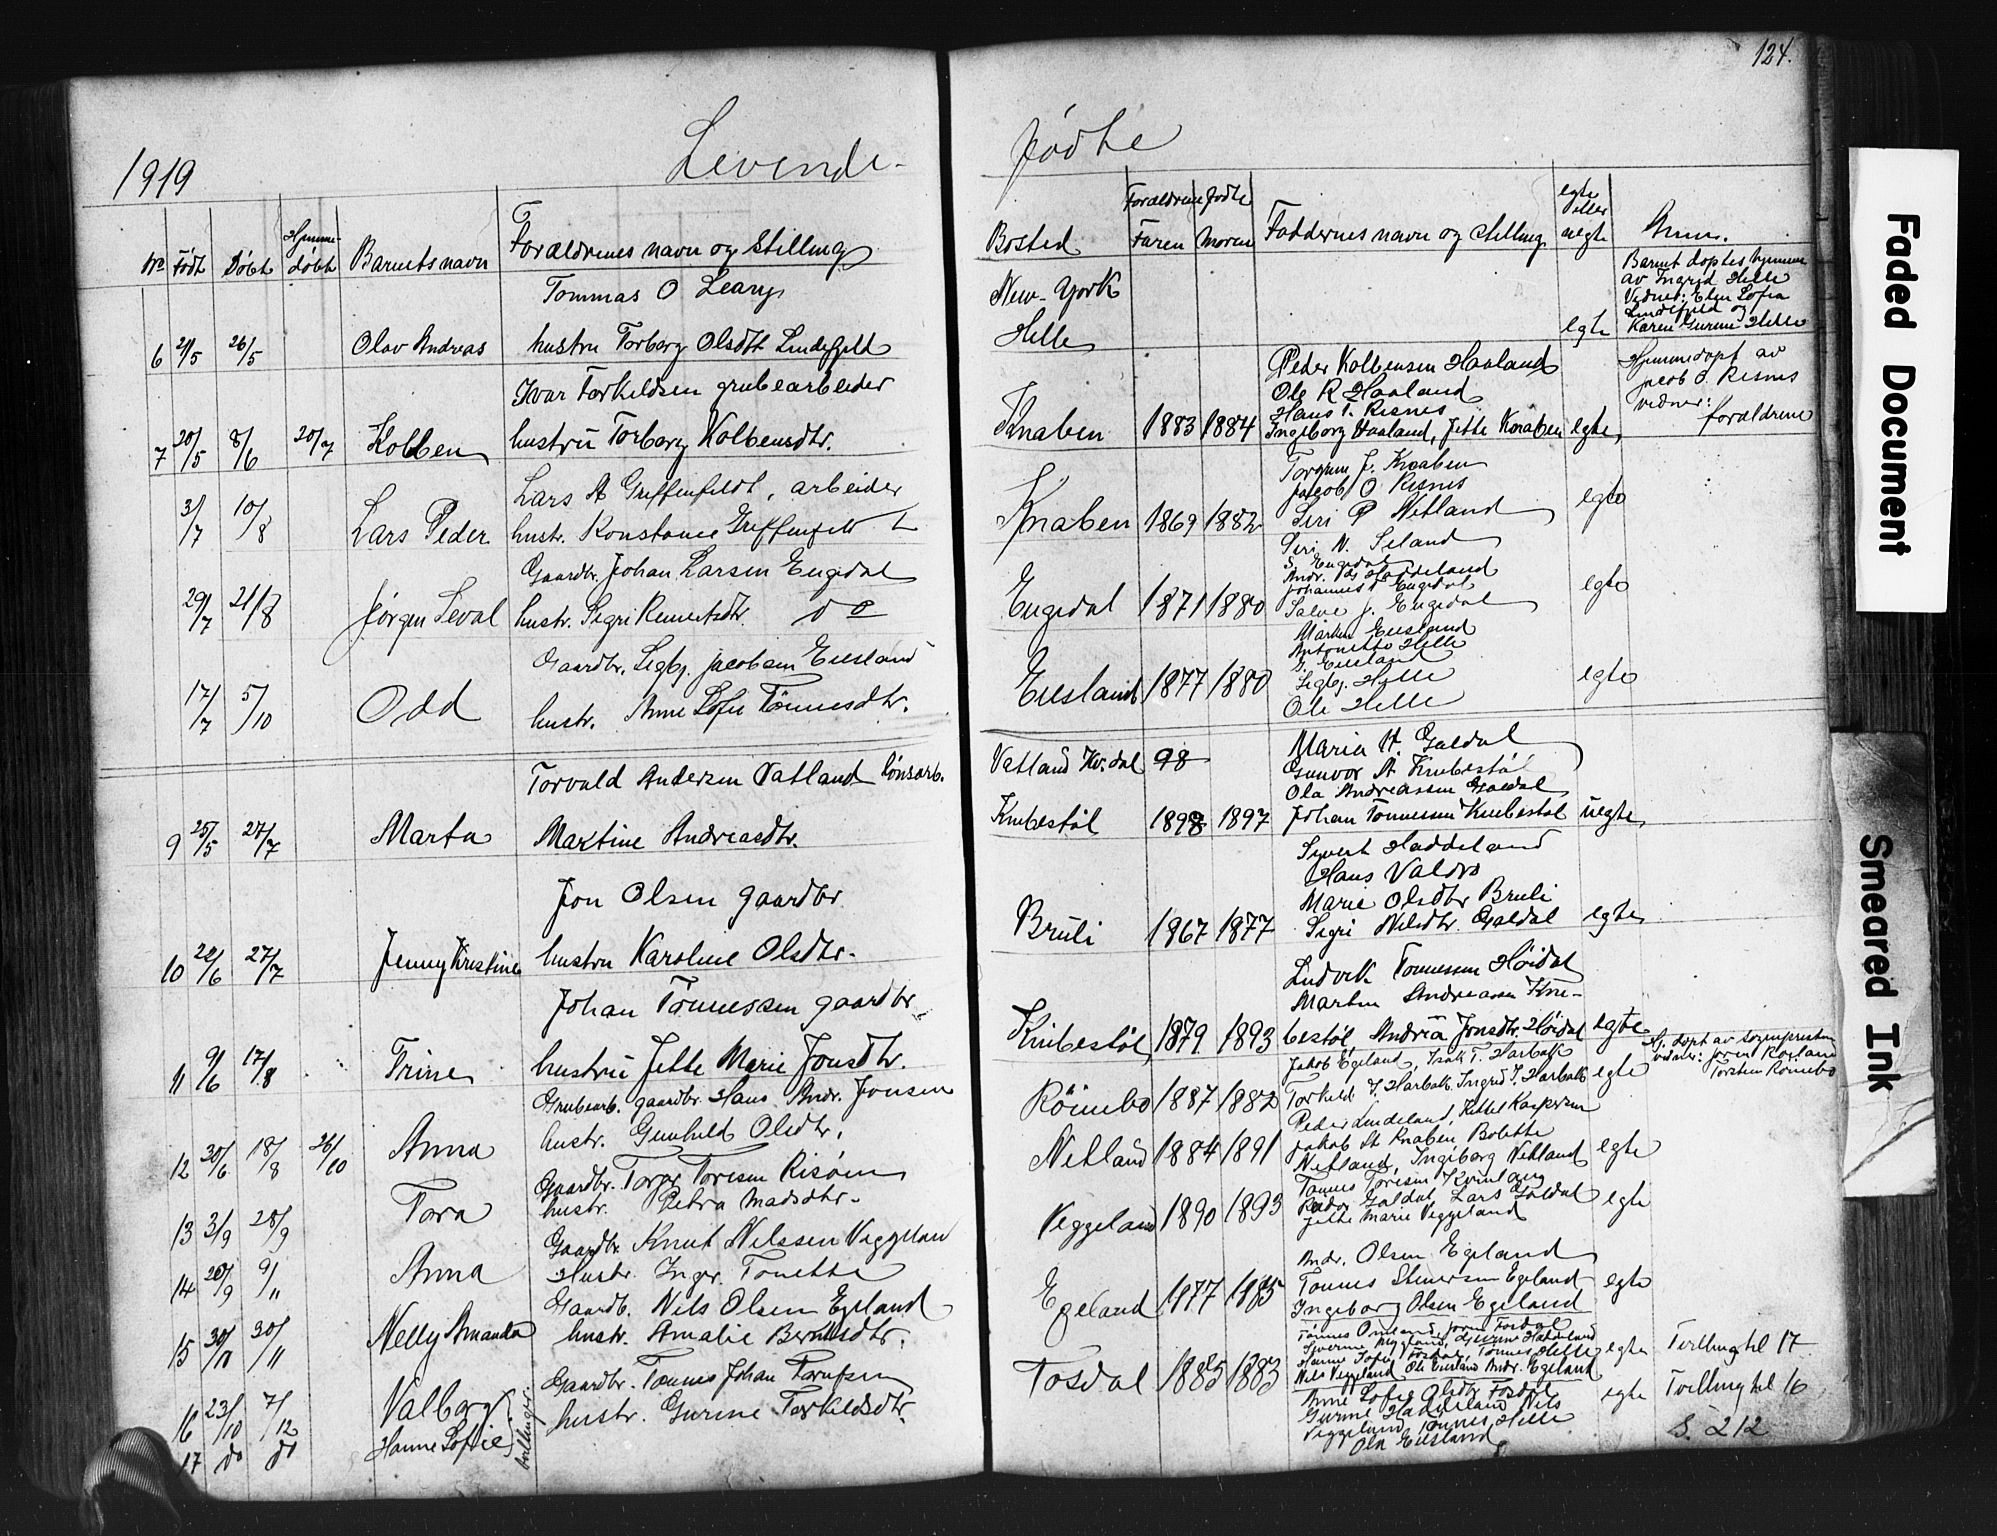 124.
1919 Levende fødte
No Født Døbt Hjemmedøbt Barnets navn Forældrenes navn og Stilling Bosted Forældrene fødte Faren Moren Faddernes navn og stilling egte eller uegte Anm.
Tommas O Leary New-York
6 26/5 Olav Andreas hustru Torborg Olsdtr Lindefjeld Helle egte
Barnet døptes hjemme
av Ingrid Helle
Vidner: Elen Sofia
Lindefjeld og
Karen Gurine Helle
Ivar Torkildsen grubearbeider
7 20/5 8/6 20/7 Kolben hustru Torborg Kolbensdtr. Knaben 1883 1884 egte
Peder Kolbensen Haaland
Ole R Haaland
Hans T. Risnes
Ingeborg Haaland, Jette Knaben
Hjemmedøpt av
Jacob O. Risnes
vidner:
forældrene
Lars A Griffenfeldt, arbeider
3/7 10/8 Lars Peder hustr. Konstance Griffenfeldt Knaben 1869 1882 egte
J. Knaben
Jacob O Risnes
Siri P Netland
Siri N. Seland
Gaardbr. Johan Larsen Engedal
29/7 21/8 Jørgen Seval hustr. Sigri do Engedal 1871 1880 egte
S. Engedal
Andr. Haddeland
Johannes Engedal
Salve J. Engedal
Gaardbr. Sigbj. Jacobsen Eiesland
17/7 5/10 Odd hustr. Anne Sofie Tønnesdtr. Eiesland 1877 1880 egte
Eiesland
Antonette Helle
G. Eiesland
Sigbj. Helle
Ole Helle
Torvald Andersen Vatland lønsarb. Vatland Kv.dal 98
9 25/5 27/7 Marta Martine Andreasdtr. Knibestøl 1898 1897 uegte
Maria A. Galdal
Gunvor A Knibestøl
Ola Andreassen Galdal
Johan Tønnessen Knibestøl
Jon Olsen gaardbr
10 22/6 27/7 Jenny Kristine hustru Karoline Olsdtr. Bruli 1867 1877 egte
Syvert Haddeland
Hans Valdro
Marie Olsdtr Bruli
Sigri Nilsdtr. Galdal
Johan Tønnessen gaardbr.
11 9/6 17/8 Trine hustru Jette Marie Jonsdtr. Knibestøl 1879 1893 egte
Ludvik Tønnessen Høidal
Martin Andreassen Kni-
bestøl Andrea Jonsdtr. Høidal
Grubearb. gaardbr. Hans Andr. Jonsen
12 30/6 18/8 26/10 Anna hustr. Gunhild Olsdtr. Rømebo 1887 1882 egte
Jakob Egeland, Isak T. Harbakk
Torkild J. Harbakk Ingrid J. Harbakk
Hj. døpt av sogneprsten
vidner: Joren Roeland
Torsten Rømebo
Gaardbr. Torgr Toresen Risøen
13 3/9 28/9 Tora hustr. Petra Madsdtr. Netland 1884 1891 egte
Peder Lindeland, Kittel Kaspersen
Jakob A Knaben Bolette
Netland, Ingeborg Netland
Gaardbr. Knut Nilssen Veggelan
14 20/9 9/11 Anna Hustr. Inger Tonette Veggeland 1890 1893 egte
Tønnes Toresen Kvinlaug
Peder Galdal, Lars Galdal
Jette Marie Veggeland
Gaardb. Nils Olsen Egeland
15 30/10 30/11 Nelly Amanda hustr. Amalie Berntsdtr. Egeland 1877 1885 egte
Andr. Olsen Egeland
Tønnes Steinersen Egeland
Ingeborg Olsen Egeland
Gaardbr. Tønnes Johan
16 23/10 7/12 Valborg hustr. Gurine Torkildsdtr. Tosdal 1885 1883 egte Tvilling til 17
Nils Veggeland Ole Eiesland Andr. Egeland
17 do do Hanne Sofie tvillinger egte Tvilling til 16
Anne Sofie Olsdtr Fosdal
Gurine Haddeland Nils
Veggeland Tønnes Helle
Ola Eiesland
S. 212
Faded Document
Smeared Ink